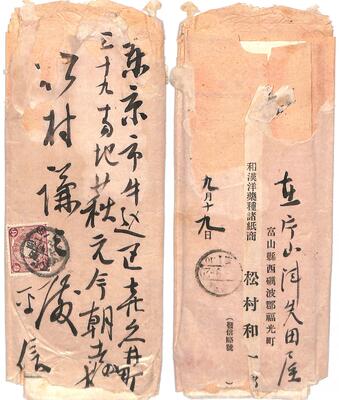 東京市牛込区喜久井町
三十九番地萩元今朝
松村謙三殿
平信
在片山津矢田屋
富山縣西礪波郡福光町
和漢洋藥種諸紙商
松村和一
(發信略號
九月十九日